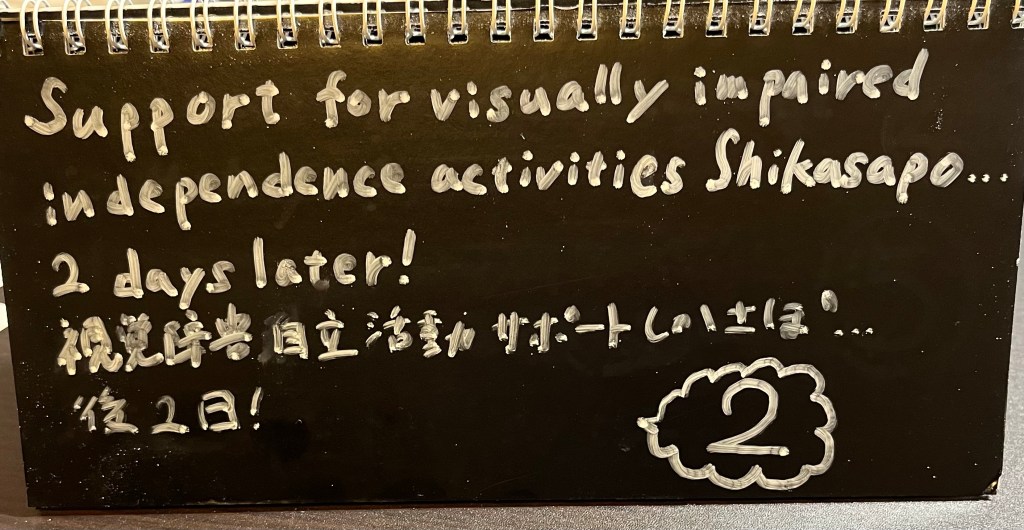 Support for visually impaired
independence activities Shikasapo...
2 days later!
視覚障害 自立活動 サポート しかさぽ...
後2日!
2